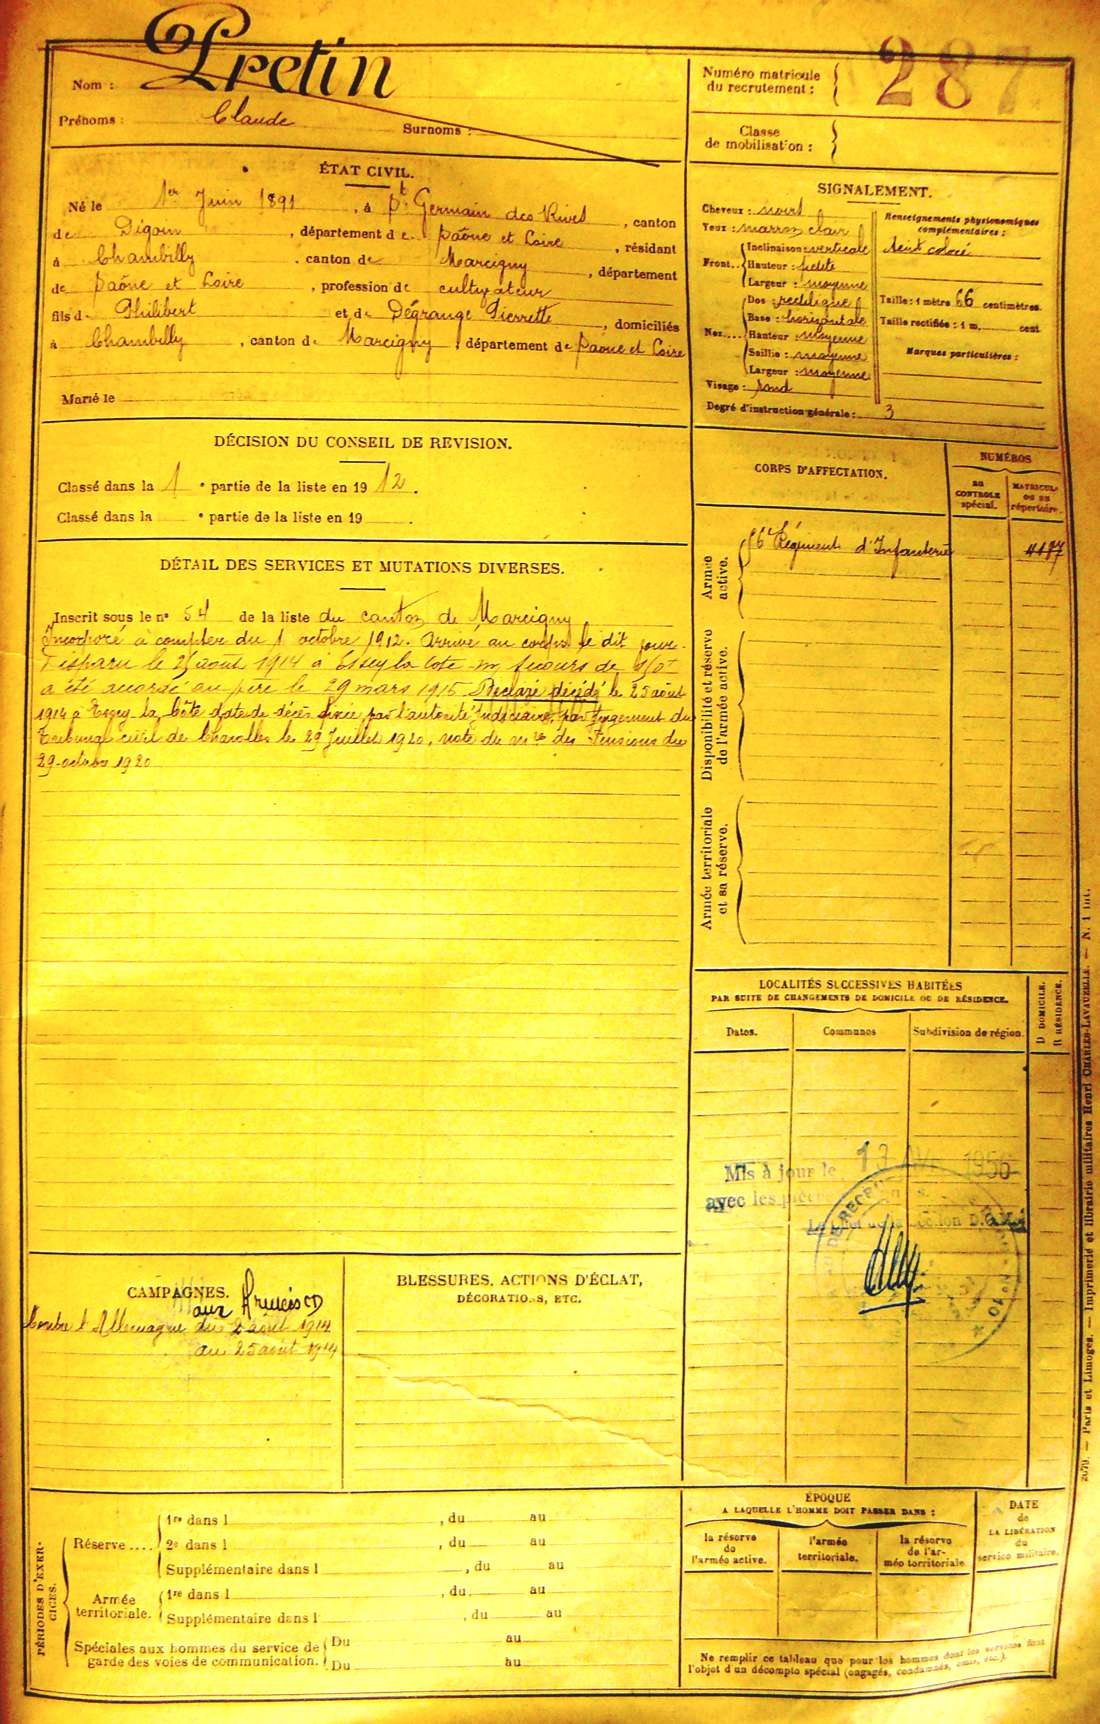 Nom : Pretin
Prénoms : Claude Surnoms :
Numéro matricule
du recrutement : 287
Classe
de mobilisation :
ÉTAT CIVIL.
Né le 1er Juin 1891, à St Germain des Rives, canton
de Digoin, département de Saône et Loire, résidant
à Chambilly, canton de Marcigny, département
de Saône et Loire, profession de cultivateur
fils de Philibert et de Dégrange Pierrette, domiciliés
à Chambilly, canton de Marcigny, département de Saone et Loire
Marié le
SIGNALEMENT.
Cheveux : noirs
Yeux : marron clair
Front.. Inclinaison : verticale
Hauteur : petite
Largeur : moyenne
Nez.... Dos : rectiligne
Base : horizontale
Hauteur : moyenne
Saillie : moyenne
Largeur : moyenne
Visage : rond
Degré d'instruction générale : 3
Renseignements physionomiques
complémentaires :
teint coloré
Taille : 1 mètre 66 centimètres.
Taille rectifiée : 1 m. cent
Marques particulières :
DÉCISION DU CONSEIL DE REVISION.
Classé dans la 1 e partie de la liste en 1912.
Classé dans la e partie de la liste en 19 .
DÉTAIL DES SERVICES ET MUTATIONS DIVERSES.
Inscrit sous le n° 54 de la liste du canton de Marcigny
Incorporé à compter du 1 octobre 1912. Arrivé au corps le dit jour.
Disparu le 25 août 1914 à Essey la Cote un secours de 150f
a été accordé au père le 29 mars 1915 Déclaré décédé le 25 août
1914 à Essey-la-Côte date de décès fixée par l'autorité judiciaire, par Jugement du
Tribunal civil de Charolles le 29 Juillet 1920, note du des Pensions du
29 octobre 1920
CORPS D'AFFECTATION.
NUMÉROS
AU
CONTROLE
spécial.
MATRICULE
OU AU
répertoire.
Armée
active.
56e Régiment d'Infanterie 4187
Disponibilité et réserve
de l'armée active.
Armée territoriale
et sa réserve.
LOCALITÉS SUCCESSIVES HABITÉES
PAR SUITE DE CHANGEMENTS DE DOMICILE OU DE RÉSIDENCE.
Dates.
Communes
Subdivision de région.
D DOMICILE.
R RÉSIDENCE.
Mis à jour le 13 1956
avec les pièces
N° 10
CAMPAGNES.
aux Armées
Contre l'Allemagne du 2 août 1914
au 25 août 1914
BLESSURES, ACTIONS D'ÉCLAT,
DÉCORATIONS, ETC.
PÉRIODES D'EXER-
CICES.
Réserve ....
1re dans l , du au
2e dans l , du au
Supplémentaire dans l , du au
Armée
territoriale.
1re dans l , du au
Supplémentaire dans l , du au
Spéciales aux hommes du service de
garde des voies de communication.
Du au
Du au
ÉPOQUE
A LAQUELLE L'HOMME DOIT PASSER DANS :
la réserve
de
l'armée active.
l'armée
territoriale.
la réserve
de l'ar-
mée territoriale
DATE
de
LA LIBÉRATION
du
service militaire.
Ne remplir ce tableau que pour les hommes dont les services font
l'objet d'un décompte spécial (engagés, condamnés, omis, etc.).
2079. — Paris et Limoges. — Imprimerie et librairie militaires Henri CHARLES-LAVAUZELLE. — N. 1 int.